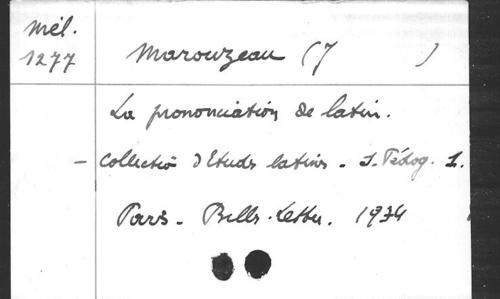 Mél.
1277
Marouzeau (J )
La prononciation de latin.
- Collectiō d'Etudes latines - S. Pédog. 1.
Paris - Bells-Lettres. 1934